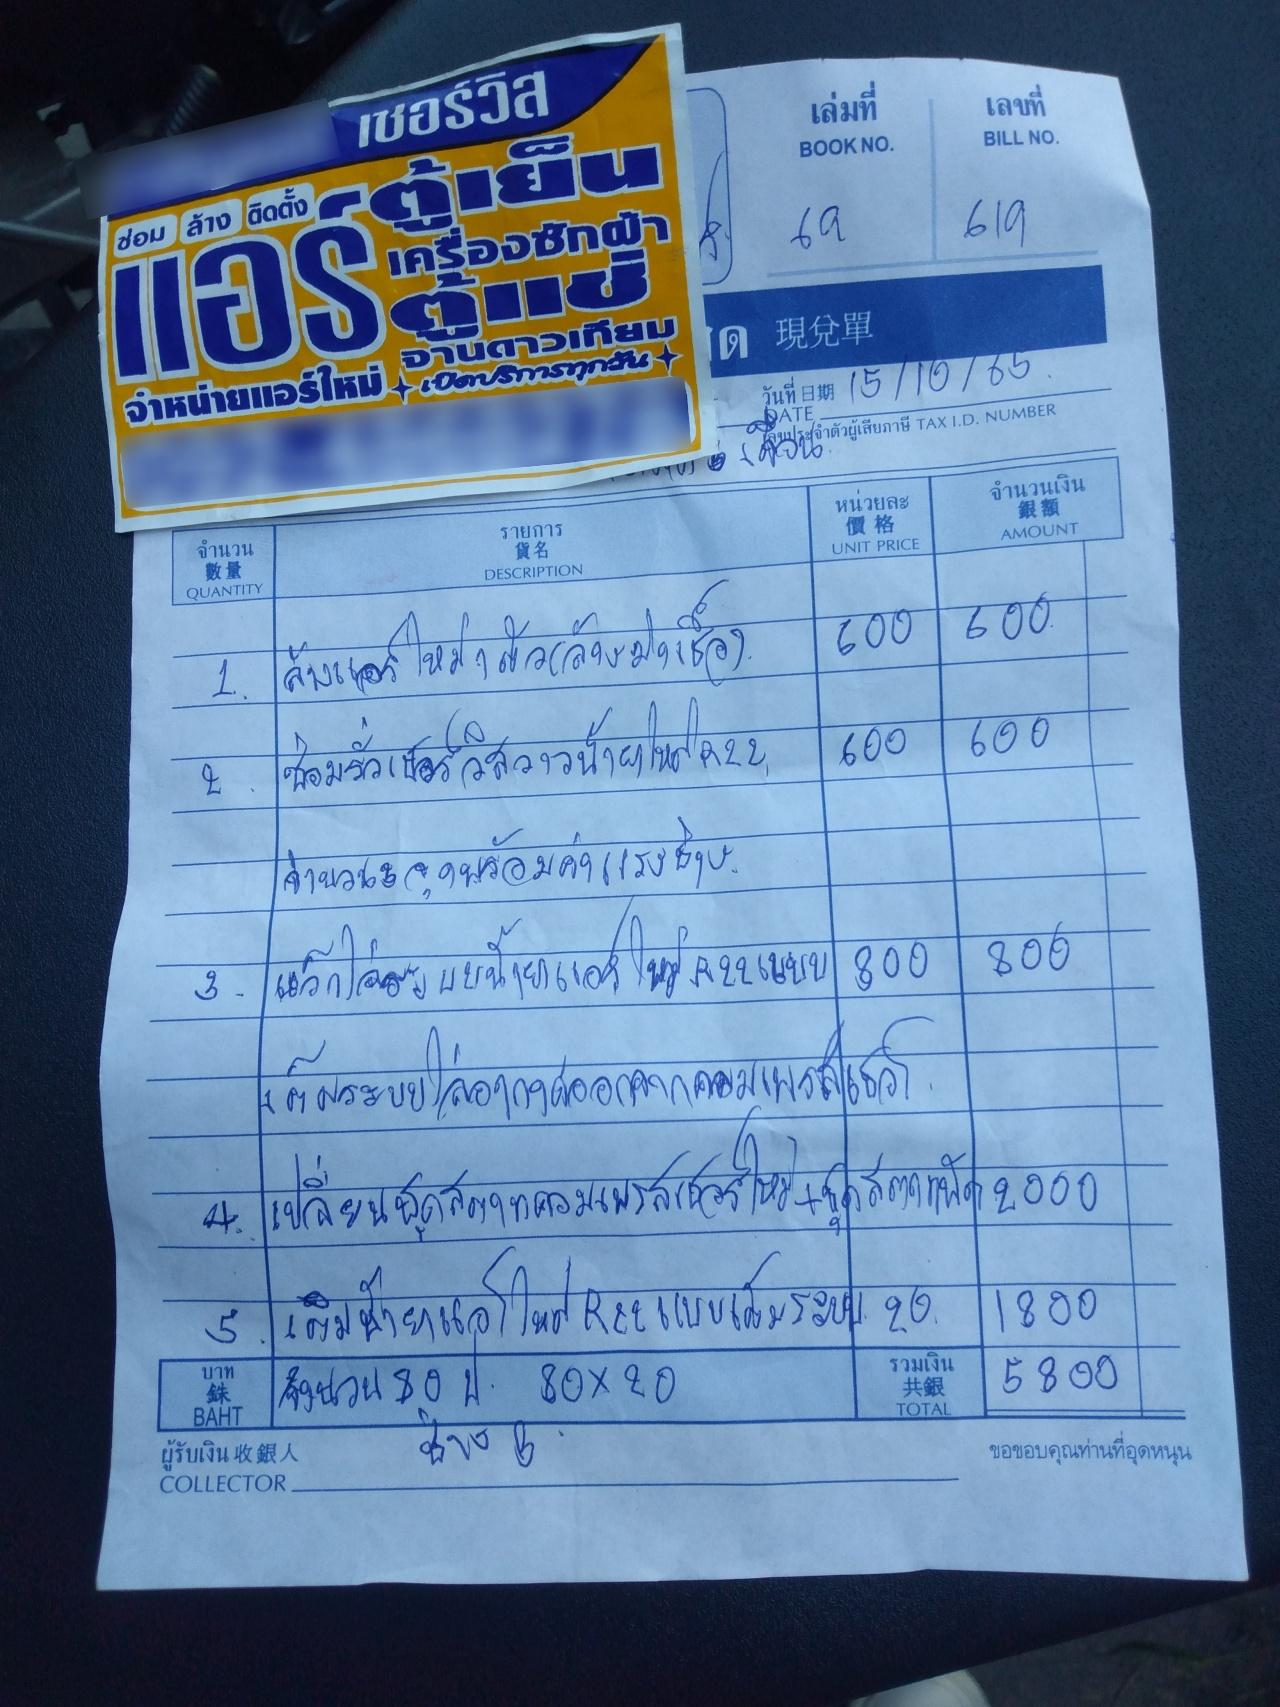 เซอร์วิส
ซ่อม ล้าง ติดตั้ง
แอร์ ตู้เย็น
เครื่องซักผ้า
ตู้แช่
จานดาวเทียม
จำหน่ายแอร์ใหม่ เปิดบริการทุกวัน
เล่มที่ เลขที่
BOOK NO. BILL NO.
69 619
สด 現兌單
วันที่ 日期 15/10/65
DATE
เลขประจำตัวผู้เสียภาษี TAX I.D. NUMBER
เดือน
จำนวน 數量 QUANTITY
รายการ 貨名 DESCRIPTION
หน่วยละ 價格 UNIT PRICE
จำนวนเงิน 銀額 AMOUNT
1. ล้างแอร์ใหม่ 1 ตัว (ล้างฆ่าเชื้อ). 600 600
2. ซ่อมรั่วเซอร์วิสวาวน้ำยาใหม่ R22, 600 600
จำนวน จุดพร้อมค่าแรงช่าง.
3. แว็กไล่ระบบน้ำยาแอร์ใหม่ R22 แบบ 800 800
เต็มระบบไล่อากาศออกจากคอมเพรสเซอร์.
4. เปลี่ยนชุดสตาทคอมเพรสเซอร์ใหม่+ชุดสตาทพัด 2000
5. เติมน้ำยาแอร์ใหม่ R22 แบบเต็มระบบ. 20. 1800
บาท 銖 BAHT จำนวน 80 ป. 80×20 รวมเงิน 共銀 TOTAL 5800
ช่าง
ผู้รับเงิน 收銀人 ขอขอบคุณท่านที่อุดหนุน
COLLECTOR